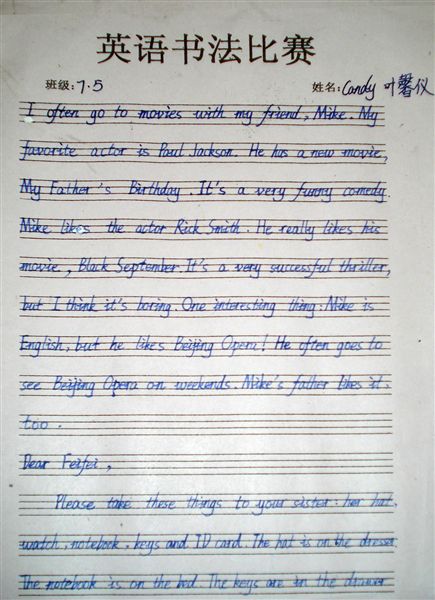 英语书法比赛
班级: 7.5 姓名: Candy 叶馨仪
I often go to movies with my friend, Mike. My
favorite actor is Paul Jackson. He has a new movie,
My Father's Birthday. It's a very funny comedy.
Mike likes the actor Rick Smith. He really likes his
movie, Black September. It's a very successful thriller,
but I think it's boring. One interesting thing: Mike is
English, but he likes Beijing Opera! He often goes to
see Beijing Opera on weekends. Mike's father likes it,
too.
Dear Feifei,
Please take these things to your sister: her hat,
watch, notebook, keys and ID card. The hat is on the dresser.
The notebook is on the bed. The keys are in the drawer